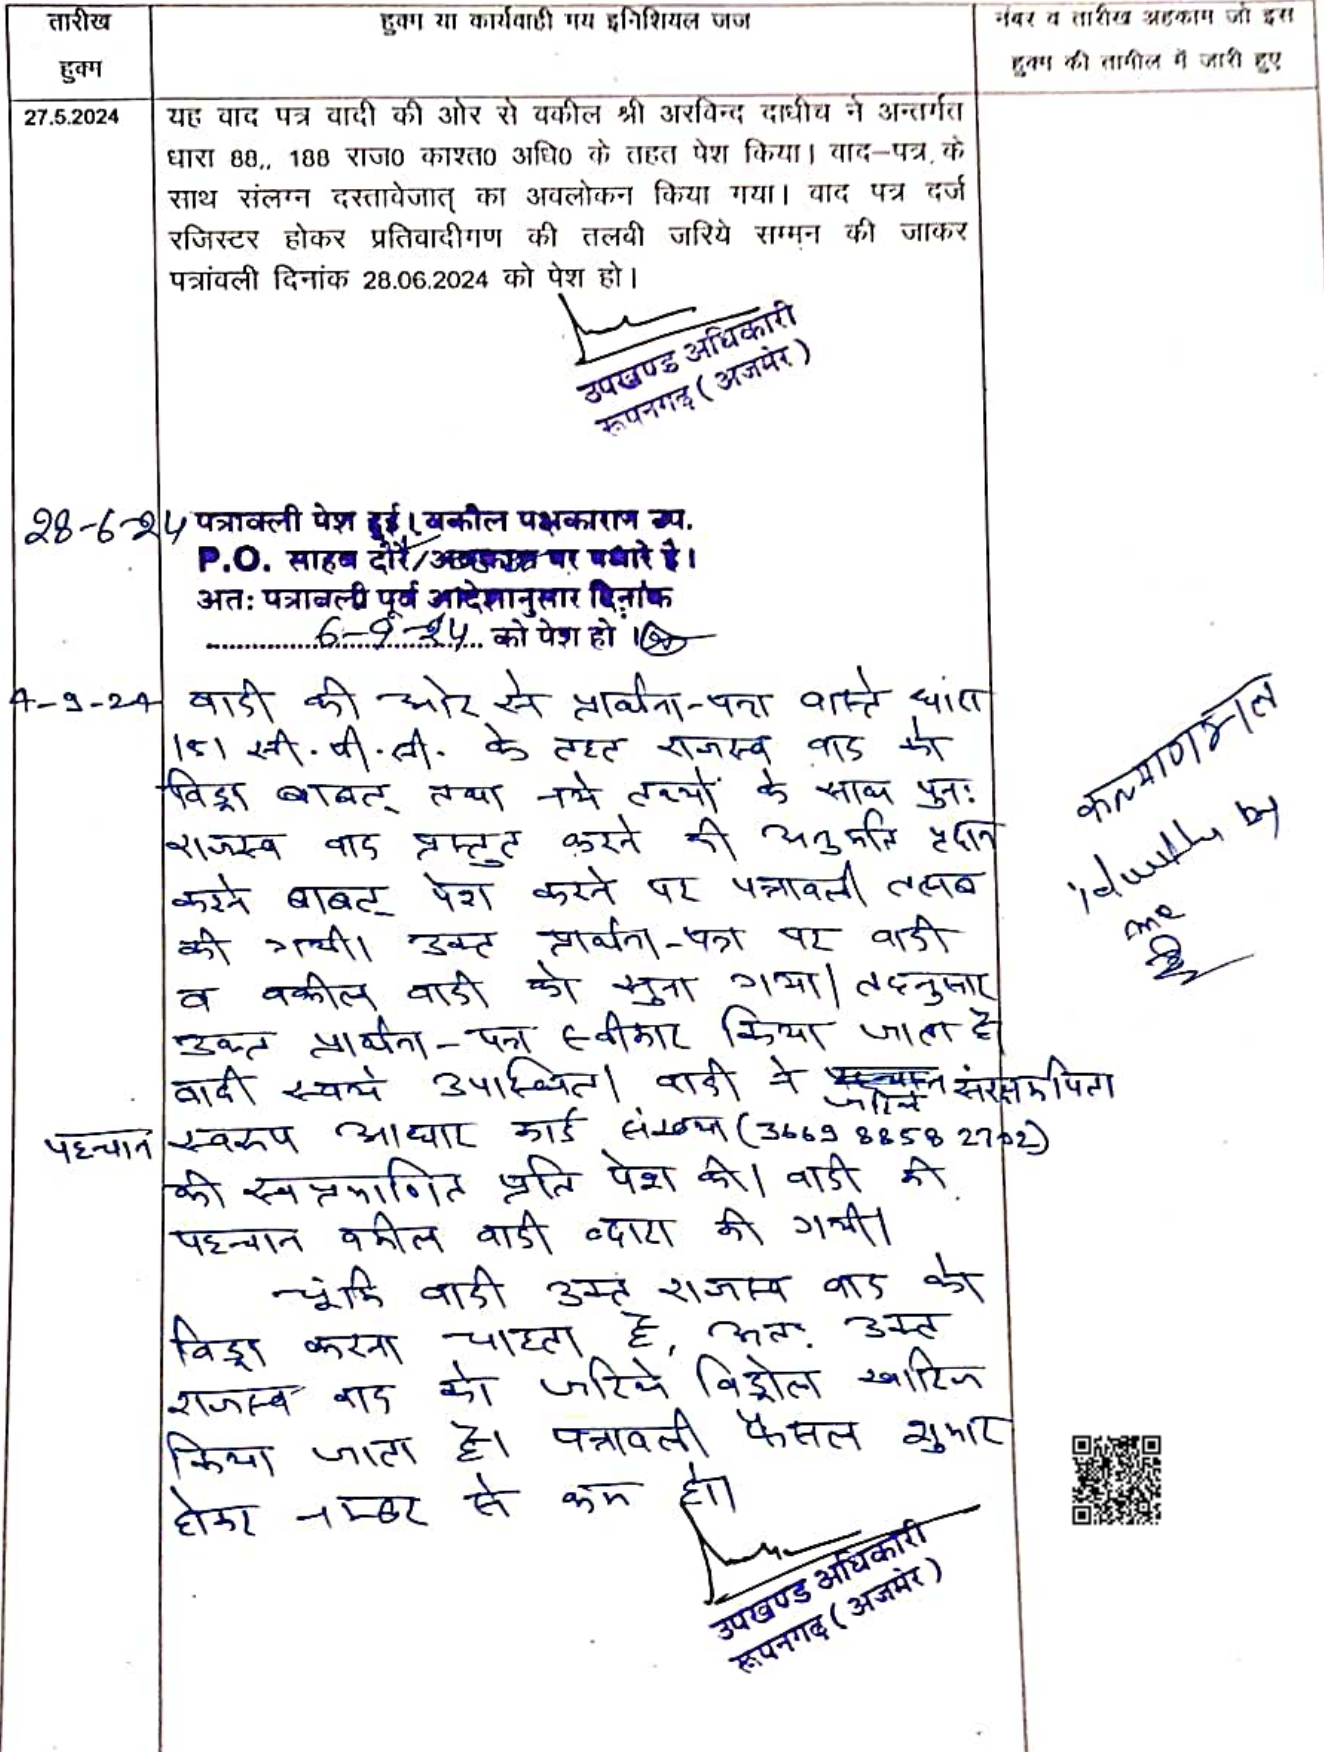 तारीख हुक्म
हुक्म या कार्यवाही मय इनिशियल जज
नंबर व तारीख अहकाम जो इस
हुक्म की तामील में जारी हुए
27.5.2024
यह वाद पत्र वादी की ओर से वकील श्री अरविन्द दाधीच ने अन्तर्गत
धारा 88,, 188 राज0 काश्त0 अधि0 के तहत पेश किया। वाद–पत्र के
साथ संलग्न दस्तावेजात् का अवलोकन किया गया। वाद पत्र दर्ज
रजिस्टर होकर प्रतिवादीगण की तलवी जरिये सम्मन की जाकर
पत्रांवली दिनांक 28.06.2024 को पेश हो।
उपखण्ड अधिकारी
रूपनगढ़ (अजमेर)
28-6-24 पत्रावली पेश हुई। वकील पक्षकारान उप.
P.O. साहब दौरे/अवकाश पर पधारे है।
अतः पत्रावली पूर्व आदेशानुसार दिनांक
6-9-24 को पेश हो।
4-9-24 वादी की ओर से प्रार्थना-पत्र वास्ते धारा
151 सी.पी.सी. के तहत राजस्व वाद को
विड्रा बाबत् तथा नये तथ्यों के साथ पुनः
राजस्व वाद प्रस्तुत करने की अनुमति प्रदान
करने बाबत् पेश करने पर पत्रावली तलब
की गयी। उक्त प्रार्थना-पत्र पर वादी
व वकील वादी को सुना गया। तदनुसार
उक्त प्रार्थना-पत्र स्वीकार किया जाता है
वादी स्वयं उपस्थित। वादी ने जरिये संरक्षक पिता
पहचान स्वरूप आधार कार्ड संख्या (3669 8858 2702)
की स्वप्रमाणित प्रति पेश की। वादी की
पहचान वकील वादी द्वारा की गयी।
चूंकि वादी उक्त राजस्व वाद को
विड्रा करना चाहता है, अतः उक्त
राजस्व वाद को जरिये विड्रोल खारिज
किया जाता है। पत्रावली फैसल शुमार
होकर नम्बर से कम हो।
उपखण्ड अधिकारी
रूपनगढ़ (अजमेर)
कल्याणमल
by
me